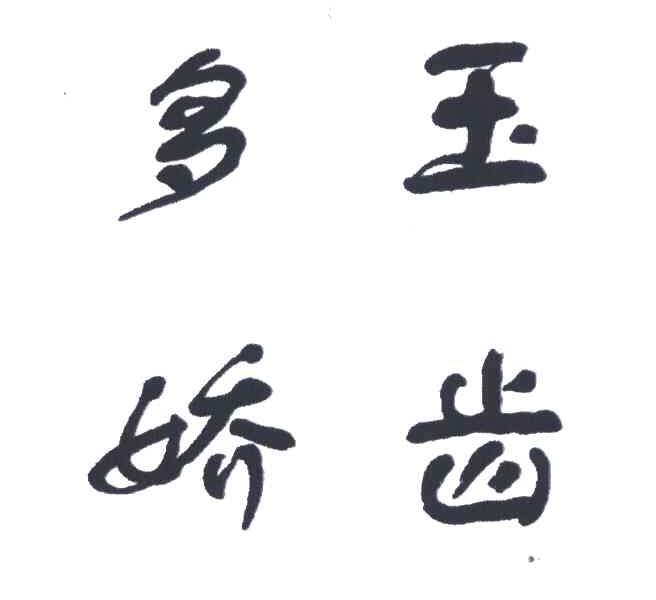 玉齿
多娇